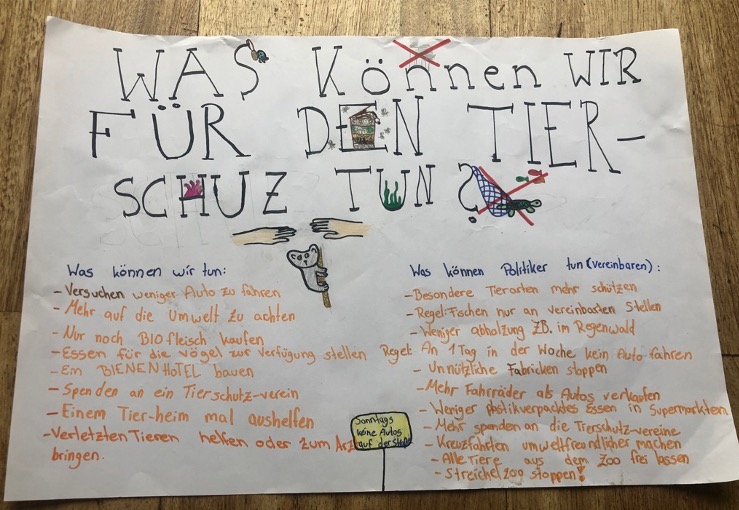 WAS KÖnnen WIR
FÜR DEN TIER-
SCHUZ TUN ?
Was können wir tun:
-Versuchen weniger Auto zu fahren
-Mehr auf die Umwelt zu achten
-Nur noch BIOfleisch kaufen
-Essen für die vögel zur Verfügung stellen
-Ein BIENENHOTEL bauen
-Spenden an ein Tierschutz-verein
-Einem Tier-heim mal aushelfen
-Verletzten Tieren helfen oder zum Arzt
bringen.
Was können Politiker tun(vereinbaren):
-Besondere Tierarten mehr schützen
-Regel:Fischen nur an vereinbarten Stellen
-Weniger abholzung ZB. im Regenwald
Regel: An 1 Tag in der Woche kein Auto fahren
-Unnützliche Fabricken stoppen
-Mehr Fahrräder als Autos verkaufen
-Weniger plastikverpacktes Essen in Supermärkten
-Mehr spenden an die Tierschutz-vereine
-Kreuzfahrten umweltfreundlicher machen
-Alle Tiere aus dem Zoo frei lassen
-Streichelzoo stoppen!
Sonntags
keine Autos
auf der